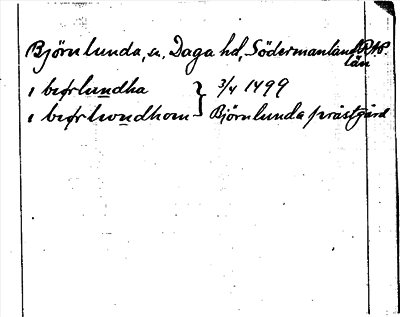 Björnlunda, sn. Daga hd, Södermanlands
län
i børlundha } 3/4 1499
i børlwndhom } Björnlunda prästgård